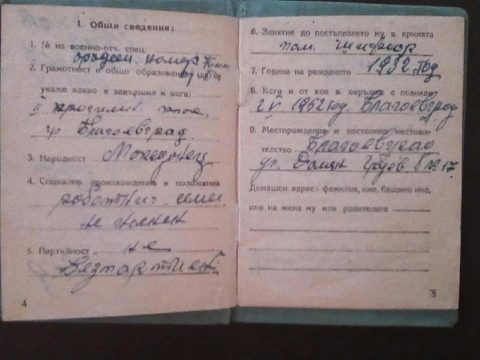 I. Общи сведения:
1. № на военно-отч. спец.
номер
2. Грамотност и общо образование (да се
укаже какво е завършил и кога)
II прогимн. клас
гр Благоевград
3. Народност Македонец
4. Социално произхождение и положение
работнич. сем.
не женен
5. Партийност не
Безпартиен
4
6. Занятие до постъпването му в армията
пом. шофьор
7. Година на раждането 1932 год
8. Кога и от кое в. окръжие е повикан
1952 год. Благоевград
9. Месторождение и постоянно местожи-
телство Благоевград
ул. № 17.
Домашен адрес: фамилия, име, бащино име,
име на жена му или родителите
5